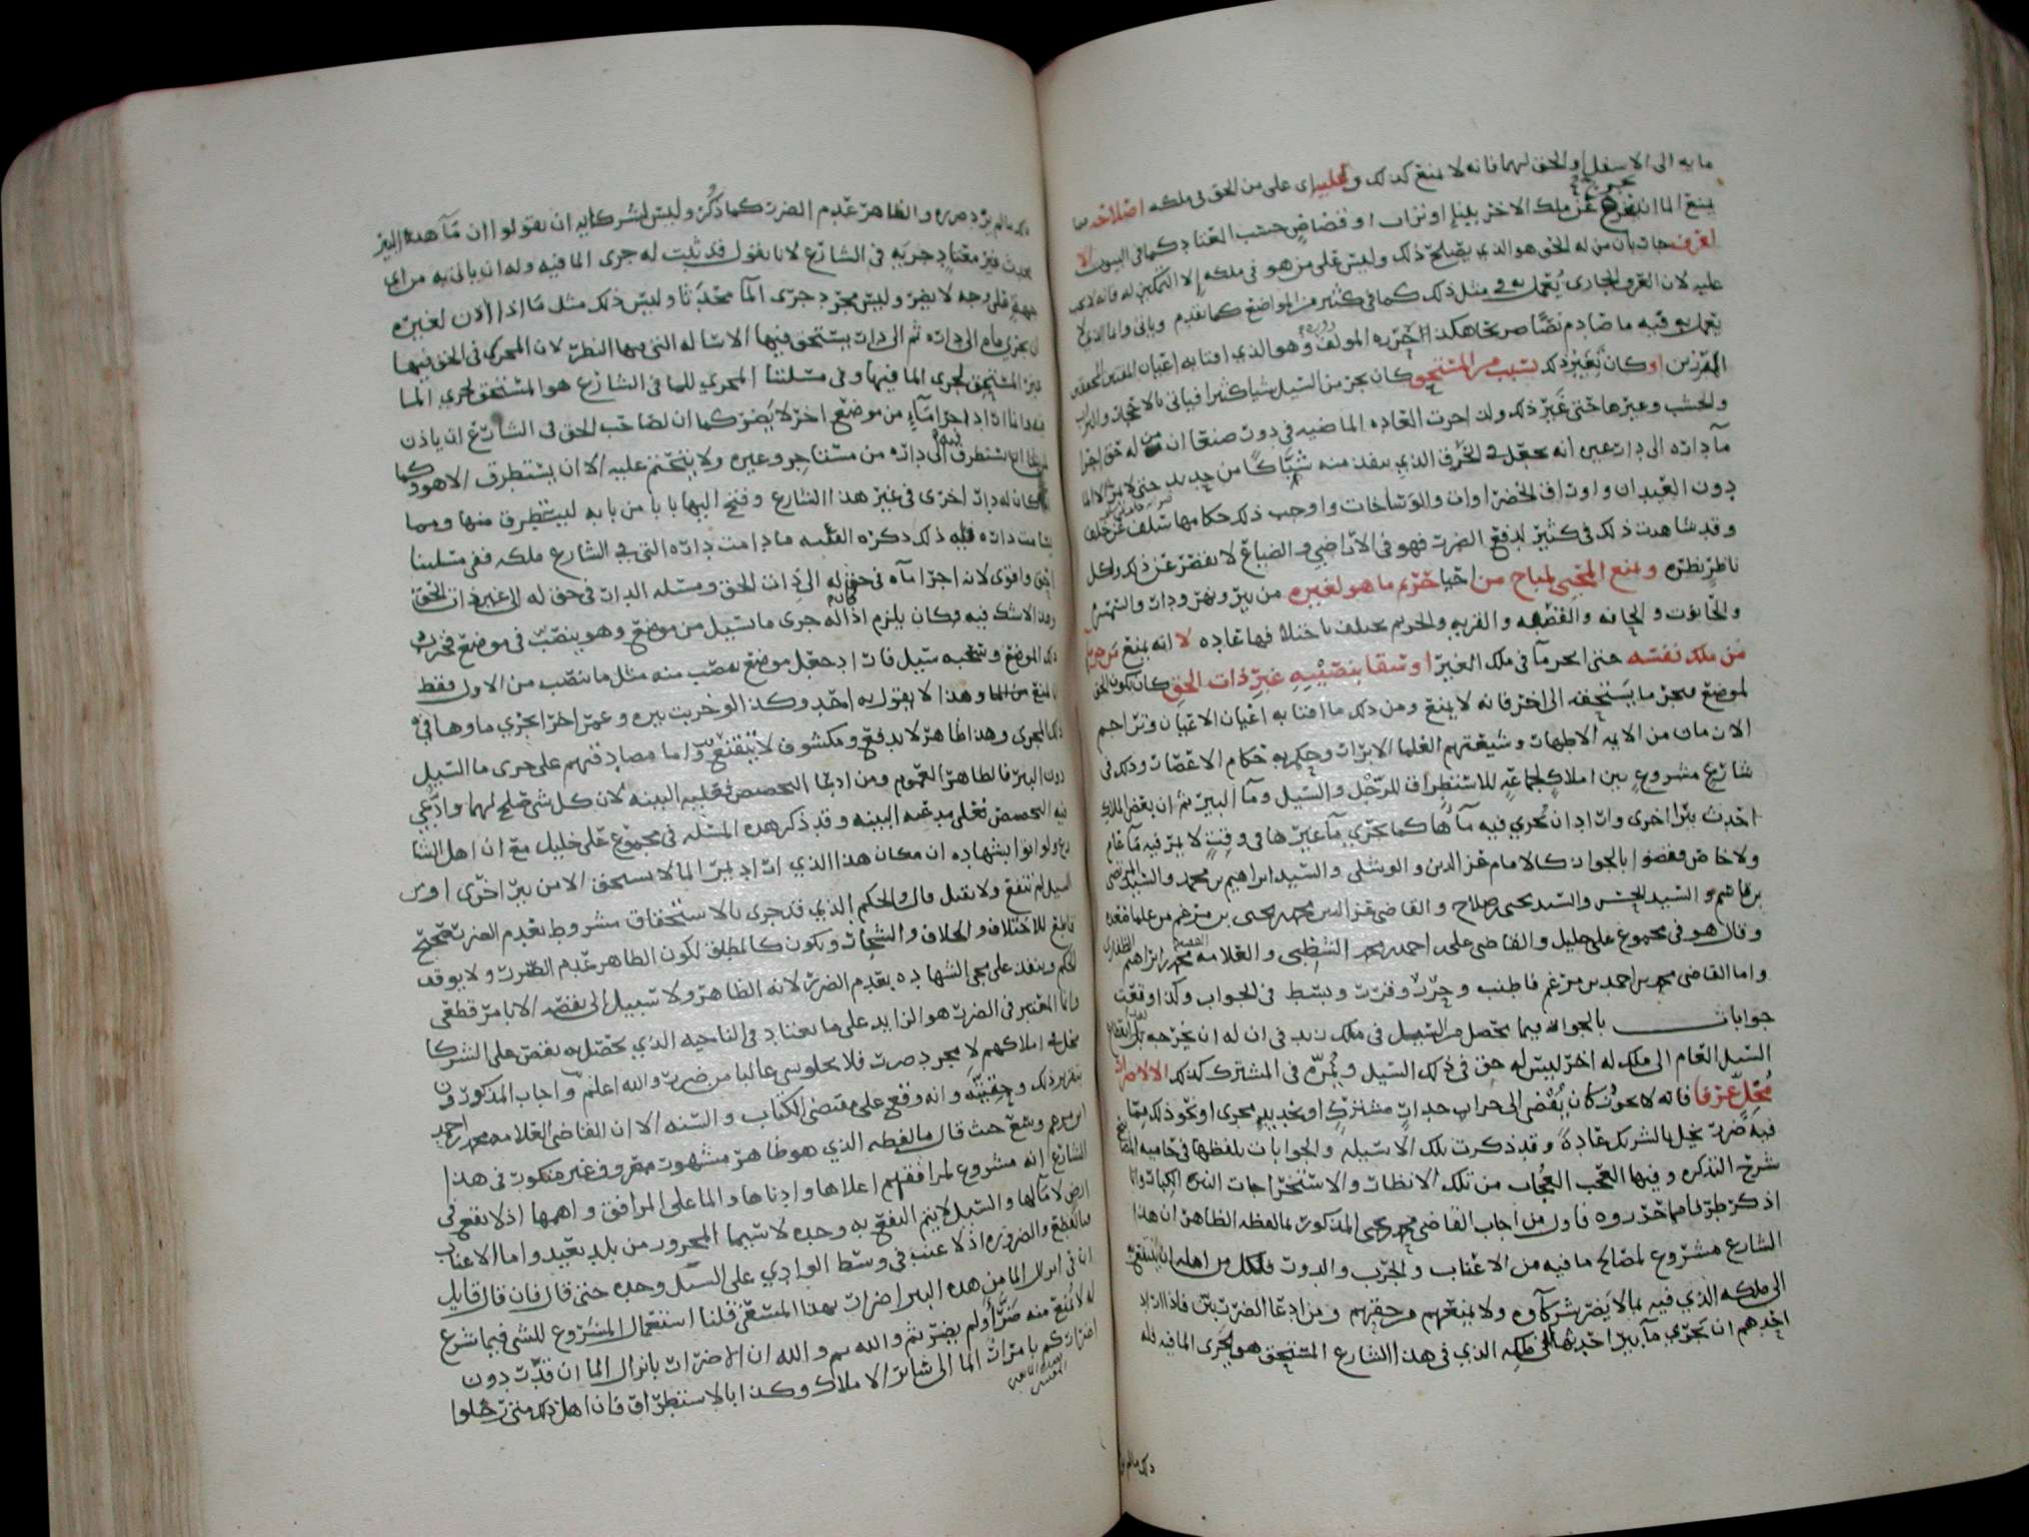 ما به الى الاسفل او الحق لهما فانه لا يمنع كذلك وعليه اى على من الحق فى ملكه اصلاحه مما
يمنع الما ان يخرج عن ملك الاخر ببنا او تراب او قضاض حسب المعتاد كما فى البيوت لا
لعرف جار بان من له الحق هو الذي يصلح ذلك وليس على من هو فى ملكه الا التمكين له فانه لا يجب
عليه لان العرف الجارى يُعمل به في مثل ذلك كما فى كثير من المواضع كما تقدم وياتى واما الذي لا
يعمل به فيه ما صادم نصا صريحا هكذا اختره المولف وهو الذي افتا به اعيان المفتين المحققين
المقررين او كان تغير ذلك بسبب من المستحق كان يجر من السيل شيا كثيرا فياتى بالاحجار والتراب
والخشب وغيرها حتى غير ذلك ولذا جرت العاده الماضيه فى دور صنعا ان من له حق اجرا
ما داره الى دار غيره انه يجعل في الخرق الذي ينفذ منه شباكا من حديد حتى لا يمر الا الما
دون العيدان واوراق الخضراوات والوساخات واوجب ذلك حكامها سلف عن خلف
وقد شاهدت ذلك فى كثير لدفع الضرر فهو فى الاراضي والضياع لا يقصر عن ذلك ولكل
ناظر نظره ويمنع المحيى لمباح من احيا حريم ما هو لغيره من بير ونهر ودار والتهم
والحانوت والجانه والقصبه والقريه والحريم يختلف باختلافها عاده لا انه يمنع من جر
من ملك نفسه حتى انجر ما فى ملك الغير او سقا بنصيبه غير ذات الحق كان يكون الحق
لموضع فيجر ما يستحقه الى اخر فانه لا يمنع ومن ذلك ما افتا به اعيان الاعيان وتراجم
الازمان من الايمه الاطهار وشيعتهم العلما الابرار وحكم به حكام الاعصار وذلك فى
شارع مشروع بين املاك لجماعة للاستطراق للرجل والسيل وما البير ثم ان بعض الملاك
احدث بيرا اخرى واراد ان يُجري فيه ماها كما يجرى ما غيرها فى وقت لا يمر فيه ما عام
ولا خاص فقضوا بالجواز كالامام عز الدين والوشلى والسيد ابراهيم بن محمد والسيد المرتضى
بن قاسم والسيد الحسن والسيد يحيى بن صلاح والقاضى عز الدين محمد بن يحيى بن مرغم من علما صعده
وقال هو فى مجموع على خليل والقاضى على بن احمد بن محمد الشظبى والعلامه محمد بن ابراهيم الظفارى
واما القاضى محمد بن احمد بن مرغم فاطنب وحرر وقرر وبسط فى الجواب وكذا وقعت
جوابات بالجواز فيما يحصل من السيل فى ملك زيد فى ان له ان يخرجه بعد انقطاع
السيل العام الى ملك له اخر ليس له حق فى ذلك السيل ويمره فى المشترك كذلك الا لاضرار
مُخل عرفا فانه لا يجوز كان يُفضى الى خراب جدار مشترك او تحديد مجرى او نحو ذلك مما
فيه ضرر يخل بالشريك عادة وقد ذكرت تلك الاسيله والجوابات بلفظها فى حاميه
شرح التذكره وفيها العجب العجاب من تلك الانظار والاستخراجات
اذكر طرفا مما حرروه فاول من اجاب القاضى محمد بن يحيى المذكور بما لفظه الظاهر ان هذا
الشارع مشروع لمصالح ما فيه من الاعناب والجرب والدور فلكل من اهله ان ينتفع به
الى ملكه الذي فيه بما لا يضر شركآوه ولا يمنعهم من حقهم ومن ادعا الضرر بين فاذا اراد
احدهم ان يجرى ما بير احدثها الى ملكه الذي فى هذا الشارع المستحق هو لجرى الما فيه فله
ذلك ما لم ير
ذلك ما لم يرد ضرره والظاهر عدم الضرر كما ذُكر وليس لشركايه ان يقولوا ان مآ هذه البير
محدث غير معتاد جريه فى الشارع لانا نقول قد ثبت له جرى الما فيه وله ان ياتى به من اى
جهة على وجه لا يضر وليس مجرد جرى المآ محدَثا وليس ذلك مثل ما اذا اراد اذن لغيره
ان يجرى ماه الى داره ثم الى دار يستحق فيها الاساله التى فيها النظر لان المجرى فى الحق فيها
غير المستحق لجرى الما فيها وفى مسلتنا المجري للما فى الشارع هو المستحق لجري الما
فيه وانما اراد اجرا مآء من موضع اخر لا يضر كما ان لصاحب الحق فى الشارع ان ياذن
لمن شا ان يستطرق فيه الى داره من مستاجر وغيره ولا يتحتم عليه الا ان يستطرق الا هو وكما
لو كان له دار اخرى فى غير هذا الشارع وفتح اليها بابا من بابه ليستطرق منها ومما
شا من داره فله ذلك ذكره الفقيه ما دامت داره التى في الشارع ملكه ففى مسلتنا
احق واقوى لانه اجرا مآه فى حق له الى ذات الحق ومسله الدار فى حق له الى غير ذات الحق
وهذا لا شك فيه وكان يلزم اذا كان له جرى ما سيل من موضع وهو ينصب فى موضع فخرب
ذلك الموضع وسحبه سيل فاراد جعل موضع يصب منه مثل ما تصب من الاول فقط
المنع من الما وهذا لا يقول به احد وكذا لو خربت بيره وعمر اخرا يجري ماوها فى
ذلك المجرى وهذا ظاهر لا يدفع ومكشوف لا يتقنع واما مصادقتهم على جرى ما السيل
دون البير فالظاهر العموم ومن ادعا التخصيص فعليه البينه لان كل شى صالح لهما واذ يدعى
فيه التخصيص فعلى مدعيه البينه وقد ذكر هذه المسله فى مجموع على خليل مع ان اهل الشا
رع ولو اتوا بشهاده ان مكان هذا الذي اراد يمر الما لا يستحق الا من بير اخرى او من
السيل لم تنفع ولا تقبل قال والحكم الذي قد جرى بالاستحقاق مشروط بعدم الضرر صحيح
قاطع للاختلاف والخلاف والشجار ويكون كالمطلق لكون الظاهر عدم الضرر ولا يوقف
الحكم وينفذ على مجى الشهاده بعدم الضرر لانه الظاهر ولا سبيل الى نقضه الا بامر قطعى
وانما المعتبر فى الضرر هو الزايد على ما يعتاد فى الناحيه الذي يحصل به نقص على الشركا
يخل في املاكهم لا مجرد ضرر فلا يخلو شى غالبا من ضرر والله اعلم واجاب المذكورون
بتقرير ذلك وحقيته وانه وقع على مقتضى الكتاب والسنه الا ان القاضى العلامه محمد بن احمد
ابن مرغم وسع حيث قال ما لفظه الذي هو ظاهر مشهور معروف غير منكور فى هذا
الشارع انه مشروع لمرافقهم اعلاها وادناها والما على المرافق واهمها اذ لا نفع فى
ارض لا مآ لها والسيل لا يتم النفع به وحده لا سيما المجرور من بلد بعيد واما الاعناب
فبالقطع والضروره اذ لا عنب فى وسط الوادي على السيل وحده حتى قال فان قال قايل
ان فى انزال الما من هذه البير اضرارا بهذا المسقى قلنا استعمال المشروع للشى فيما شرع
له لا يُمنع منه ضرّ او لم يضر ثم والله ثم والله ان الاضرار بانزال الما ان قدّر دون
اضراركم بامرار الما الى ساير الاملاك وكذا بالاستطراق فان اهل ذلك متى ترحلوا